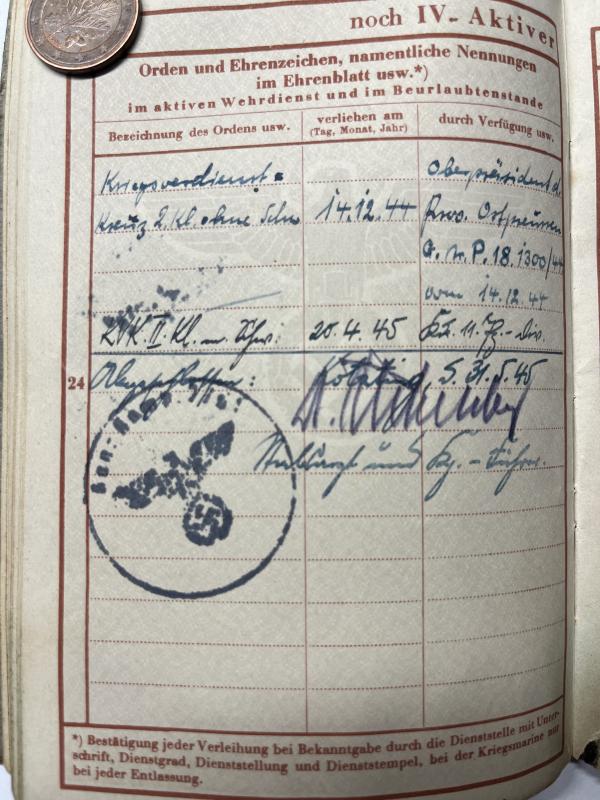 noch IV. Aktiver
Orden und Ehrenzeichen, namentliche Nennungen
im Ehrenblatt usw.*)
im aktiven Wehrdienst und im Beurlaubtenstande
Bezeichnung des Ordens usw.
verliehen am
(Tag, Monat, Jahr)
durch Verfügung usw.
Kriegsverdienst=
Oberpräsident d.
Kreuz 2. Kl. ohne Schw. 14.12.44 Prov. Ostpreussen
18.1300/44
vom 14.12.44
KVK II. Kl. m. Schw. 20.4.45 11. Div.
24
Abgeschlossen: 5. 31.5.45
und Führer.
*) Bestätigung jeder Verleihung bei Bekanntgabe durch die Dienststelle mit Unter-
schrift, Dienstgrad, Dienststellung und Dienststempel, bei der Kriegsmarine nur
bei jeder Entlassung.